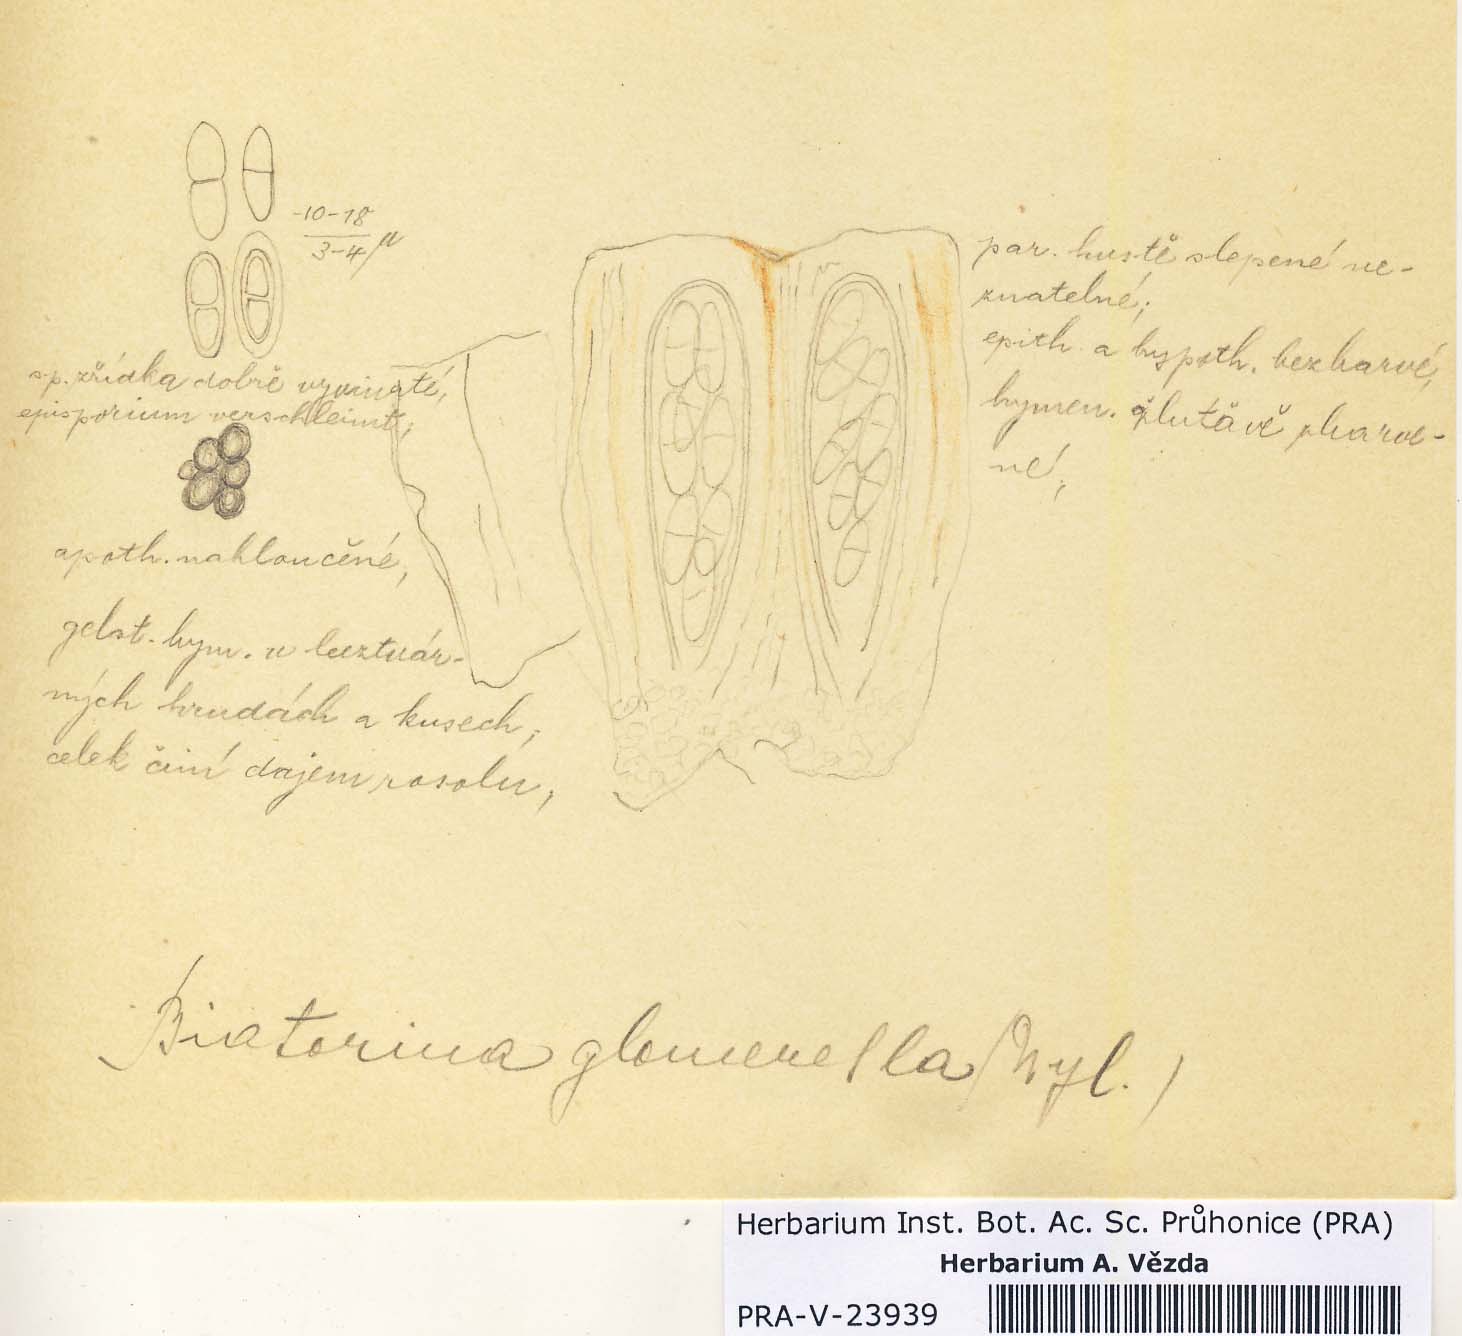 10-18
3-4 µ
sp. zřídka dobře vyvinuté,
episporium verschleimt;
apoth. nahloučené,
gelat. hym. v beztvár-
ných hrudách a kusech;
celek činí dojem rosolu,
par. hustě slepené ne-
znatelné;
epith. a hypoth. bezbarvé,
hymen. žlutavě zbarve-
né;
Biatorina glomerella (Nyl.)
Herbarium Inst. Bot. Ac. Sc. Průhonice (PRA)
Herbarium A. Vězda
PRA-V-23939